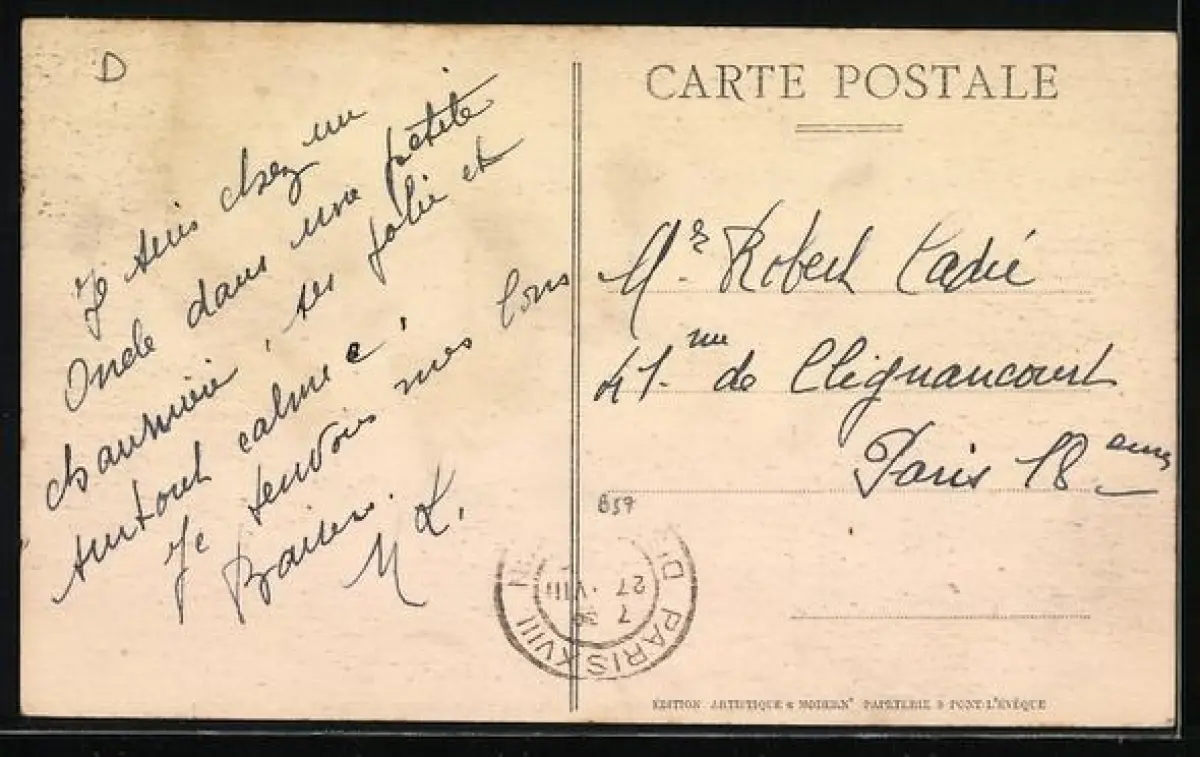 D
Je suis chez un
Oncle dans une petite
chaumière, très jolie et
surtout calme !
Je t'envois mes bons
Baisers.
M L.
CARTE POSTALE
Mr. Robert Cadié
41. rue de Clignancourt
Paris 18eme
B57
PARIS XVIII
7 30
27 · VIII
ÉDITION ARTISTIQUE « MODERN' PAPETERIE » PONT-L'ÉVÊQUE